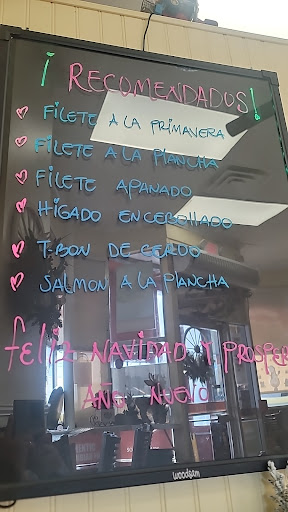 ¡ RECOMENDADOS!
FILETE A LA PRIMAVERA
FILETE A LA PLANCHA
FILETE APANADO
HIGADO ENCEBOLLADO
T-BON DE CERDO
SALMON A LA PLANCHA
FELIZ NAVIDAD Y PROSPER
AÑO NUEVO
woodsam